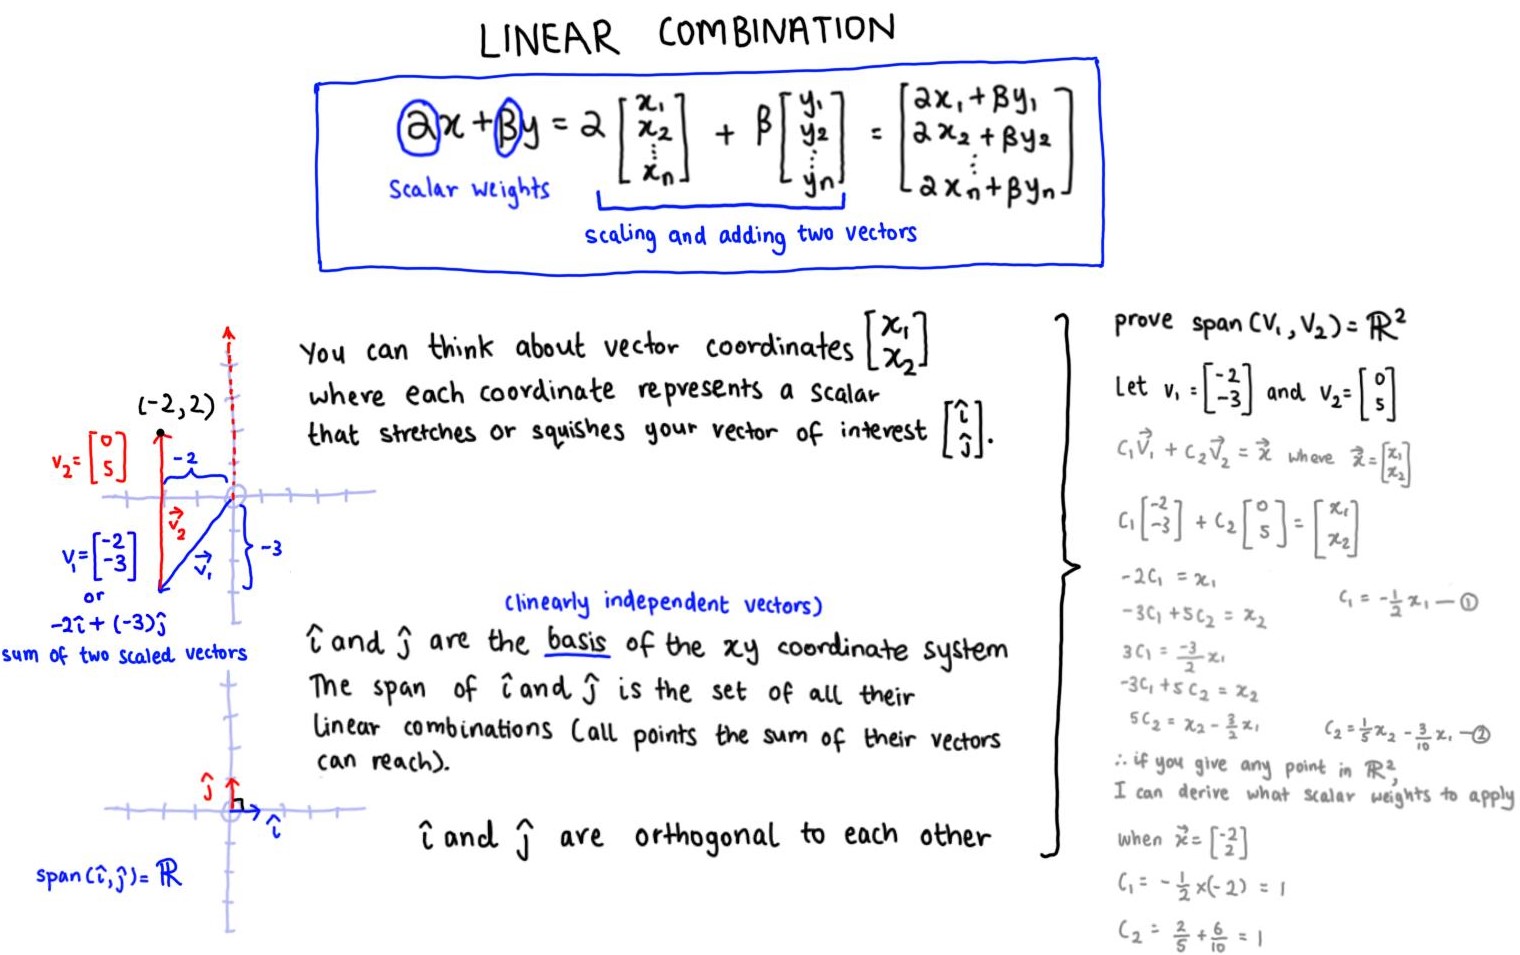 LINEAR COMBINATION
αx + βy = α [x₁ x₂ ⋮ xₙ] + β [y₁ y₂ ⋮ yₙ] = [αx₁ + βy₁ αx₂ + βy₂ ⋮ αxₙ + βyₙ]
Scalar weights
scaling and adding two vectors
You can think about vector coordinates [x₁ x₂]
where each coordinate represents a scalar
that stretches or squishes your vector of interest [î ĵ].
(-2,2)
v₂ = [0 5]
-2
v⃗₂
v₁ = [-2 -3]
v⃗₁
-3
or
-2î + (-3)ĵ
sum of two scaled vectors
(linearly independent vectors)
î and ĵ are the basis of the xy coordinate system
The span of î and ĵ is the set of all their
linear combinations (all points the sum of their vectors
can reach).
ĵ
î
î and ĵ are orthogonal to each other
span(î,ĵ) = ℝ
prove span(v₁, v₂) = ℝ²
Let v₁ = [-2 -3] and v₂ = [0 5]
c₁v⃗₁ + c₂v⃗₂ = x⃗ where x⃗ = [x₁ x₂]
c₁ [-2 -3] + c₂ [0 5] = [x₁ x₂]
-2c₁ = x₁
c₁ = -1/2 x₁ — ①
-3c₁ + 5c₂ = x₂
3c₁ = -3/2 x₁
-3c₁ + 5c₂ = x₂
5c₂ = x₂ - 3/2 x₁
c₂ = 1/5 x₂ - 3/10 x₁ — ②
∴ if you give any point in ℝ²,
I can derive what scalar weights to apply
when x⃗ = [-2 2]
c₁ = -1/2 × (-2) = 1
c₂ = 2/5 + 6/10 = 1